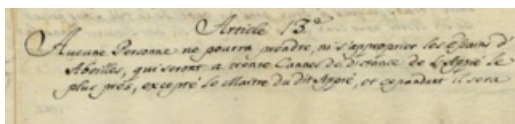 Article 13.e
Aucune Personne ne pourra prendre, ni s'approprier les Essains d'
Abeilles, qui seront a trente Cannes de distance de L'Appié le
plus près, excepté le Maitre du dit Appié, et cependant il sera